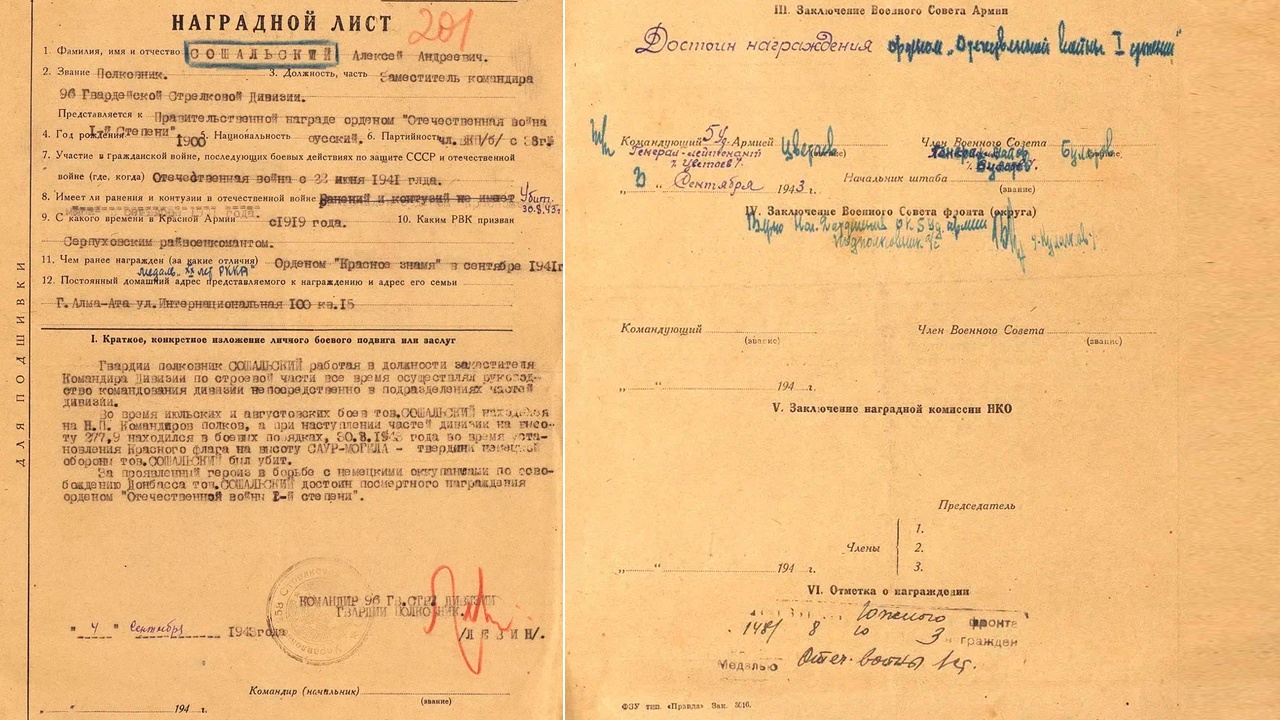 НАГРАДНОЙ ЛИСТ
201
1. Фамилия, имя и отчество СОШАЛЬСКИЙ Алексей Андреевич.
2. Звание Полковник. 3. Должность, часть Заместитель командира
96 Гвардейской Стрелковой Дивизии.
Представляется к Правительственной награде орденом "Отечественная война
I-й Степени".
4. Год рождения 1900 5. Национальность русский. 6. Партийность чл.ВКП/б/ с
7. Участие в гражданской войне, последующих боевых действиях по защите СССР и отечественной
войне (где, когда) Отечественная война с 22 июня 1941 года.
8. Имеет ли ранения и контузии в отечественной войне Ранений и контузий не имеет Убит
30.8.43г.
9. С какого времени в Красной Армии с1919 года. 10. Каким РВК призван
Серпуховским райвоенкоматом.
11. Чем ранее награжден (за какие отличия) Орденом "Красное знамя" в сентябре 1941г
медаль "XX лет РККА"
12. Постоянный домашний адрес представляемого к награждению и адрес его семьи
Г. Алма-Ата ул.Интернациональная 100 кв.15
I. Краткое, конкретное изложение личного боевого подвига или заслуг
Гвардии полковник СОШАЛЬСКИЙ работая в должности заместителя
Командира Дивизии по строевой части все время осуществлял руковод-
ство командования дивизии непосредственно в подразделениях частей
дивизии.
Во время июльских и августовских боев тов.СОШАЛЬСКИЙ находился
на Н.П. Командиров полков, а при наступлении частей дивизии на высо-
ту 277,9 находился в боевых порядках, 30.8.1943 года во время уста-
новления Красного флага на высоту САУР-МОГИЛА - твердыни немецкой
обороны тов.СОШАЛЬСКИЙ был убит.
За проявленный героизм в борьбе с немецкими оккупантами по осво-
бождению Донбасса тов.СОШАЛЬСКИЙ достоин посмертного награждения
орденом "Отечественной войны -й степени".
КОМАНДИР 96 ГВ.СТР. ДИВИЗИИ
ГВАРДИИ ПОЛКОВНИК.
/ЛЕВИН/.
" 4 " Сентября 1943года
Командир (начальник)
(звание)
" " 194 г.
ДЛЯ ПОДШИВКИ
III. Заключение Военного Совета Армии
Достоин награждения орденом "Отечественной войны I степени"
Командующий 5 Уд. Армией Цветаев Член Военного Совета Булатов
Генерал-лейтенант Генерал-майор
/Цветаев/. (звание)
Начальник штаба
(звание)
" " Сентября 1943 г.
IV. Заключение Военного Совета фронта (округа)
5 Уд. армии
Командующий Член Военного Совета
(звание) (звание)
" " 194 г.
V. Заключение наградной комиссии НКО
Председатель
Члены
1.
2.
3.
" " 194 г.
VI. Отметка о награждении
Южного фронта
148/ 8 10 3 награжден
Медалью Отеч. войны 1 ст.
ФЗУ тип. «Правда» Зак. 5016.